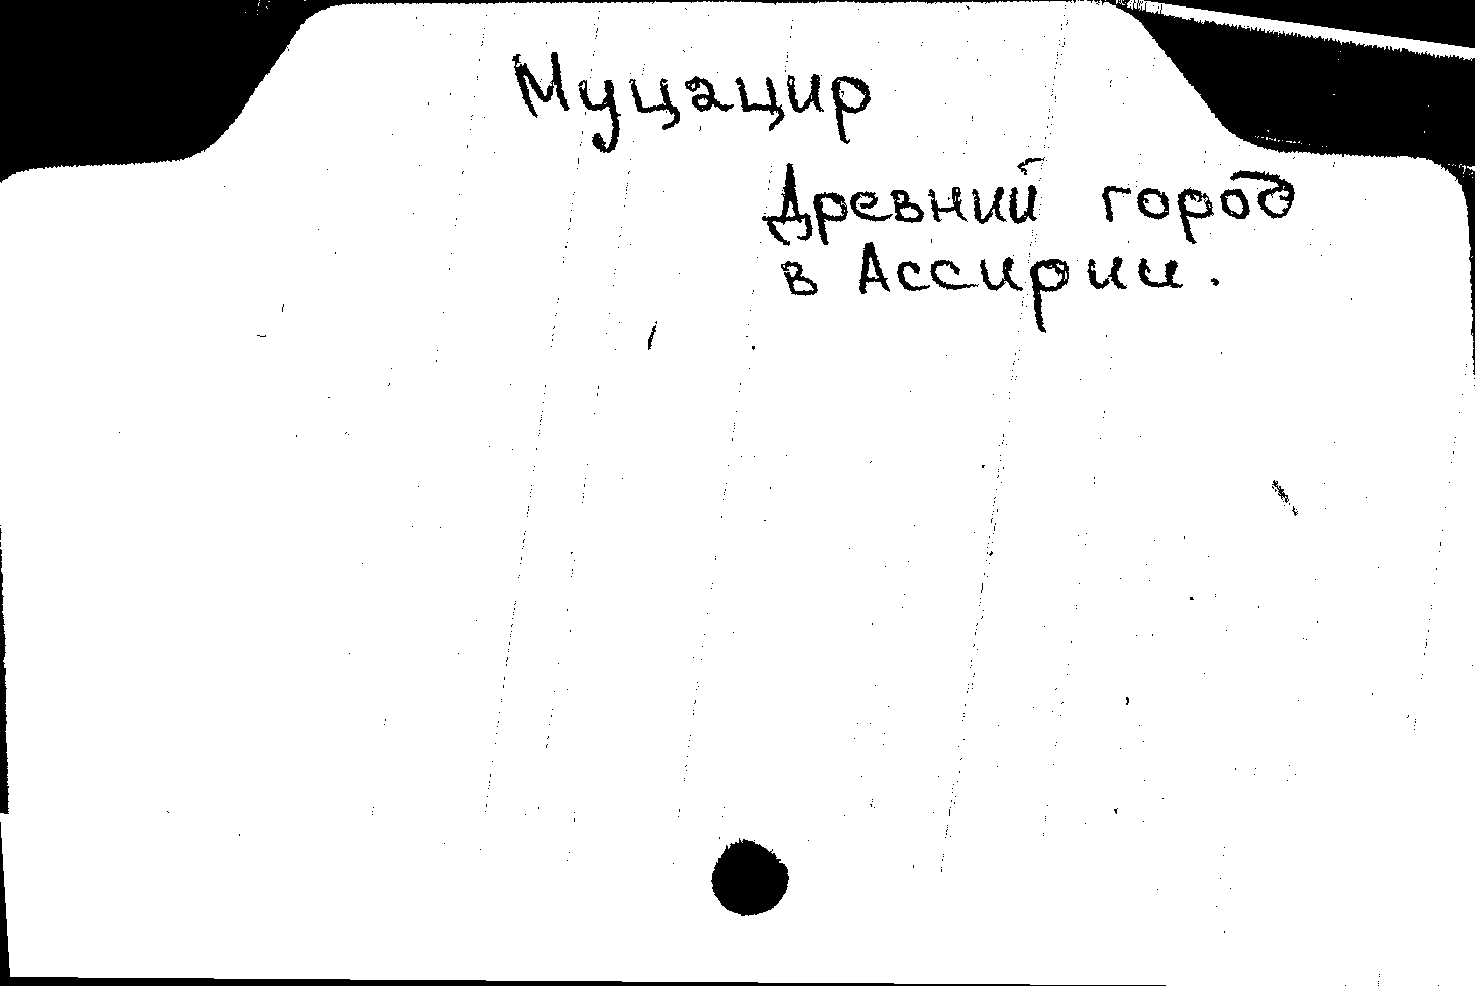 Муцацир
Древний город
в Ассирии.